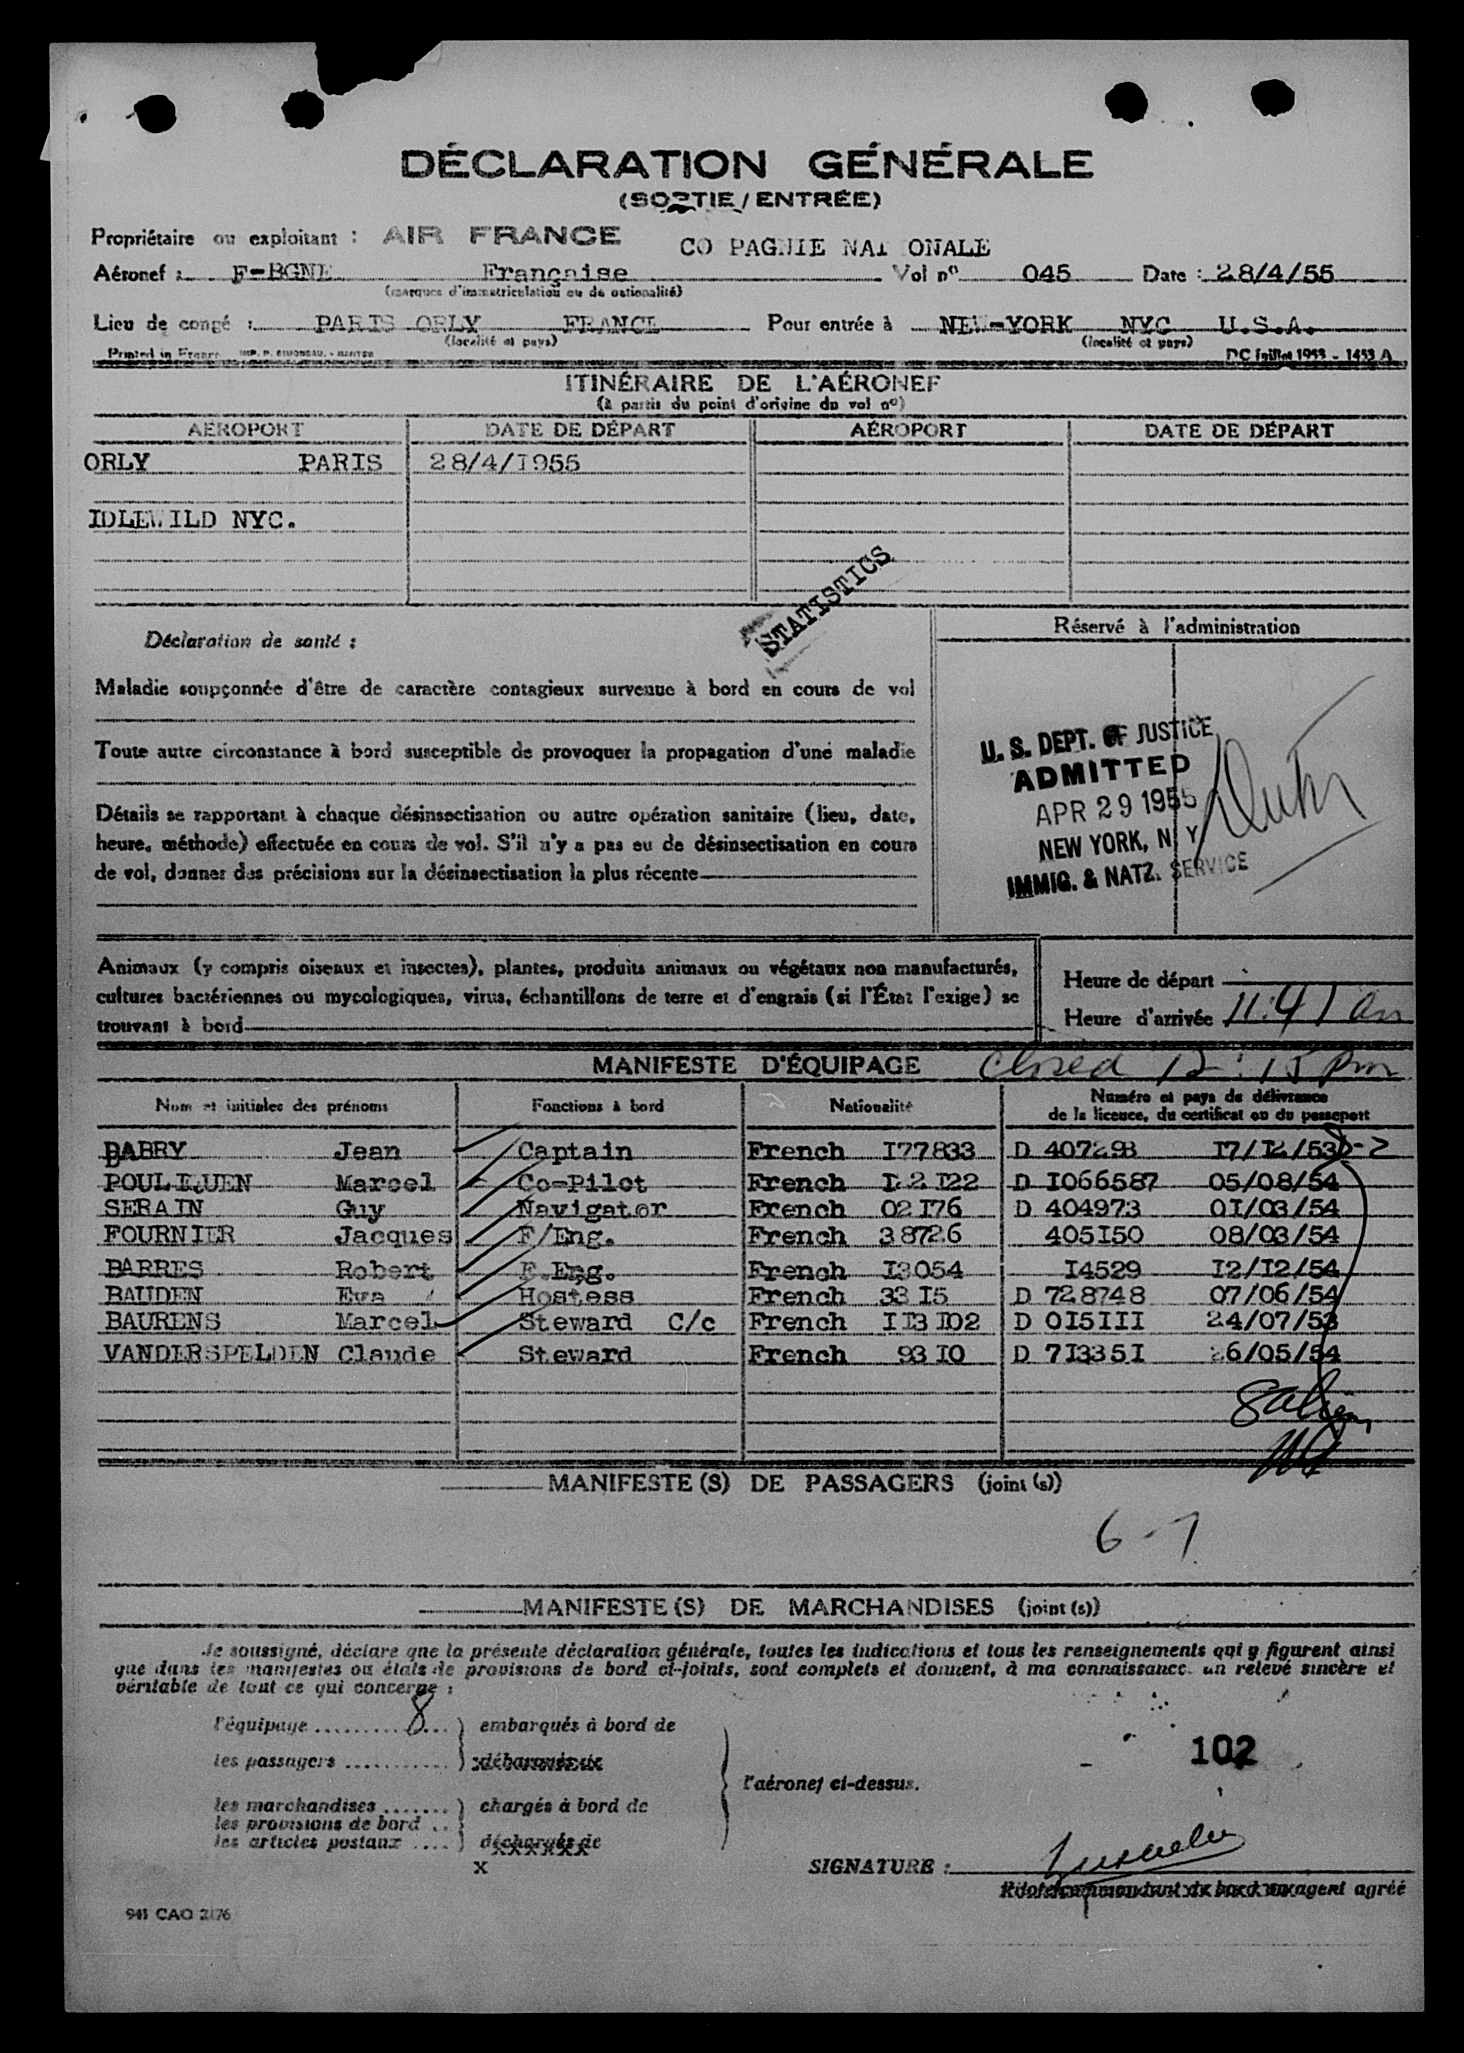 DÉCLARATION GÉNÉRALE
(SORTIE / ENTRÉE)
Propriétaire ou exploitant : AIR FRANCE CO PAGNIE NATIONALE
Aéronef : F-BGNE Française Vol nº 045 Date : 28/4/55
(marques d'immatriculation ou de nationalité)
Lieu de congé : PARIS ORLY FRANCE Pour entrée à NEW-YORK NYC U.S.A.
(localité et pays) (localité et pays)
Printed in France DC juillet 1953 - 1453 A
ITINÉRAIRE DE L'AÉRONEF
(à partir du point d'origine du vol nº)
AÉROPORT DATE DE DÉPART AÉROPORT DATE DE DÉPART
ORLY PARIS 28/4/I955
IDLEWILD NYC.
STATISTICS
Réservé à l'administration
Déclaration de santé :
Maladie soupçonnée d'être de caractère contagieux survenue à bord en cours de vol
Toute autre circonstance à bord susceptible de provoquer la propagation d'une maladie
Détails se rapportant à chaque désinsectisation ou autre opération sanitaire (lieu, date,
heure, méthode) effectuée en cours de vol. S'il n'y a pas eu de désinsectisation en cours
de vol, donner des précisions sur la désinsectisation la plus récente
U. S. DEPT. OF JUSTICE
ADMITTED
APR 29 1955
NEW YORK, N. Y.
IMMIG. & NATZ. SERVICE
Animaux (y compris oiseaux et insectes), plantes, produits animaux ou végétaux non manufacturés,
cultures bactériennes ou mycologiques, virus, échantillons de terre et d'engrais (si l'État l'exige) se
trouvant à bord
Heure de départ
Heure d'arrivée 11:41 am
MANIFESTE D'ÉQUIPAGE closed 12:15 pm
Nom et initiales des prénoms Fonctions à bord Nationalité Numéro et pays de délivrance
de la licence, du certificat ou du passeport
DABRY Jean Captain French I77833 D 407298 I7/I2/53 D-2
POULIQUEN Marcel Co-Pilot French I22I22 D I066587 05/08/54
SERAIN Guy Navigator French 02I76 D 404973 0I/03/54
FOURNIER Jacques F/Eng. French 38726 405I50 08/03/54
BARRES Robert F.Eng. French I3054 I4529 I2/I2/54
BAUDEN Eva Hostess French 33I5 D 728748 07/06/54
BAURENS Marcel Steward C/c French II3I02 D 0I5III 24/07/53
VANDERSPELDEN Claude Steward French 93I0 D 7I335I 26/05/54
MANIFESTE (S) DE PASSAGERS (joint (s))
6-7
MANIFESTE (S) DE MARCHANDISES (joint (s))
Je soussigné, déclare que la présente déclaration générale, toutes les indications et tous les renseignements qui y figurent ainsi
que dans les manifestes ou états de provisions de bord ci-joints, sont complets et donnent, à ma connaissance, un relevé sincère et
véritable de tout ce qui concerne :
l'équipage 8 embarqués à bord de
les passagers débarqués de
l'aéronef ci-dessus.
102
les marchandises chargés à bord de
les provisions de bord
les articles postaux déchargés de
x
SIGNATURE :
Pilote commandant de bord ou agent agréé
941 CAO 2176